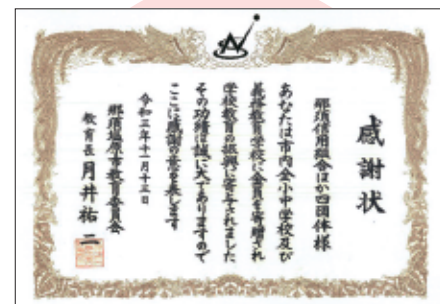 感謝状
那須信用組合ほか四団体様
あなたは市内全小中学校及び
義務教育学校に金員を寄贈され
学校教育の振興に寄与されました
その功績は誠に大でありますので
ここに感謝の意を表します
令和三年十一月十三日
那須塩原市教育委員会
教育長 月井祐二